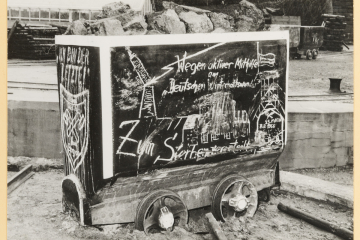 ICH BIN DER
LETZTE
Wegen aktiver Mithilfe
am
„Deutschen Wirtschaftswunder“
Zum Sterben verurteilt